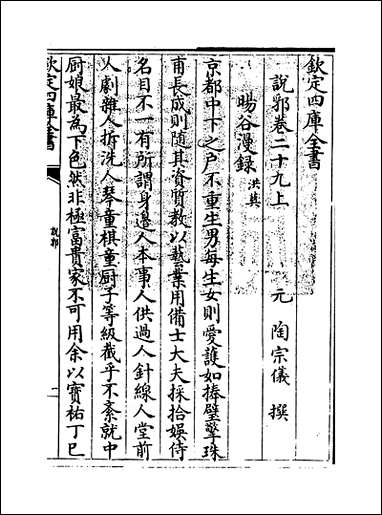 欽定四庫全書
說郛卷二十九上
元 陶宗儀 撰
暘谷漫録 洪巽
京都中下之户不重生男每生女則愛護如捧璧擎珠
甫長成則随其資質教以藝業用備士大夫採拾娛侍
名目不一有所謂身邊人本事人供過人針線人堂前
人劇雜人拆洗人琴童棋童厨子等級截乎不紊就中
厨娘最為下色然非極富貴家不可用余以寶祐丁巳
欽定四庫全書
說郛
一